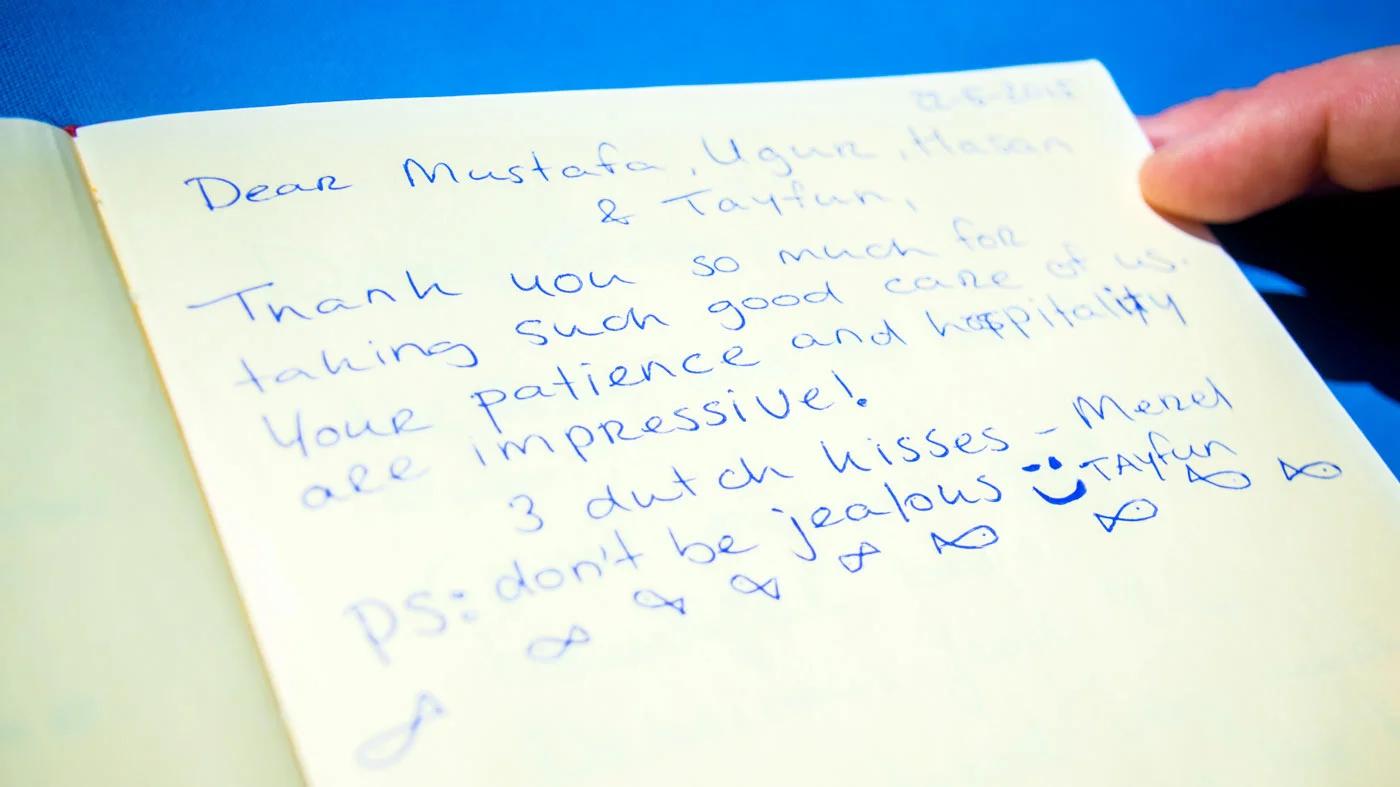 22-5-2015
Dear Mustafa, Ugur, Hasan
& Tayfun,
Thank you so much for
taking such good care of us.
Your patience and hospitality
are impressive!
3 dutch kisses - Merel
PS: don't be jealous TAYfun